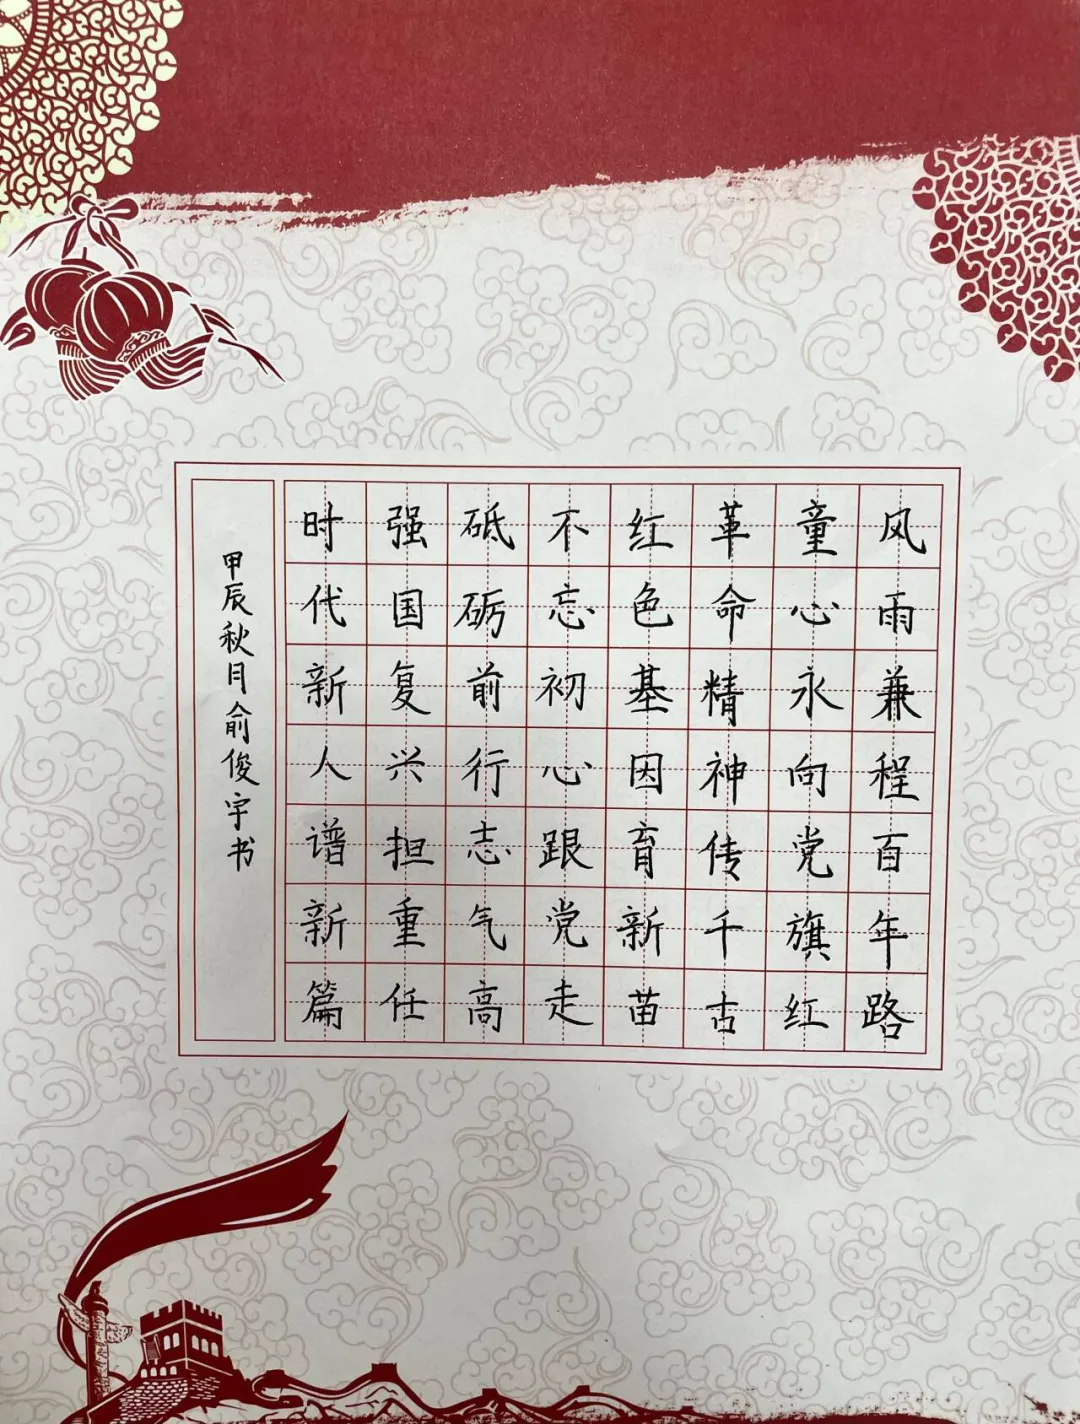 风雨兼程百年路
童心永向党旗红
革命精神传千古
红色基因育新苗
不忘初心跟党走
砥砺前行志气高
强国复兴担重任
时代新人谱新篇
甲辰秋月俞俊宇书